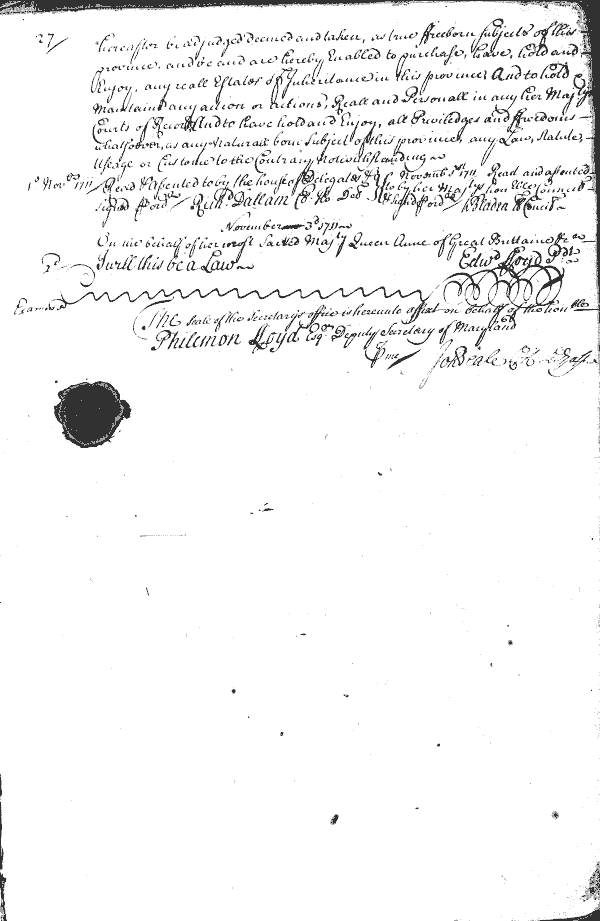 27/
hereafter be adjudged deemed and taken, as true ffreeborn Subjects of this
province, and be and are hereby Enabled to purchase, have, hold and
Enjoy, any reall Estates of Inheritance in this province And to hold
Maintaine any action or actions, Reall and Personall in any her Majtys
Courts of Record And to have hold and Enjoy, all Priviledges and ffreedoms
whatsoever, as any Naturall born Subject of this province, any Law, Statute,
Usage or Custome to the Contrary Notwithstanding
1st Novbr 1711 Read & Assented to by the house of Delegates Novemb 3d 1711 Read and assented
Signed p ord Richd Dallam Cl. Ho. Del to by her Majtys honble Councill
Signed p ord W Bladen Cl Concil
November 3d 1711
On the behalf of her most Sacred Majty Queen Anne of Great Brittaine &c
I will this be a Law Edwd Lloyd Pdt
Examined
The Seale of the Secretarys office is hereunto affixt on behalf of the honble
Philemon Lloyd Esqr Deputy Secretary of Maryland
p me Jo Beale